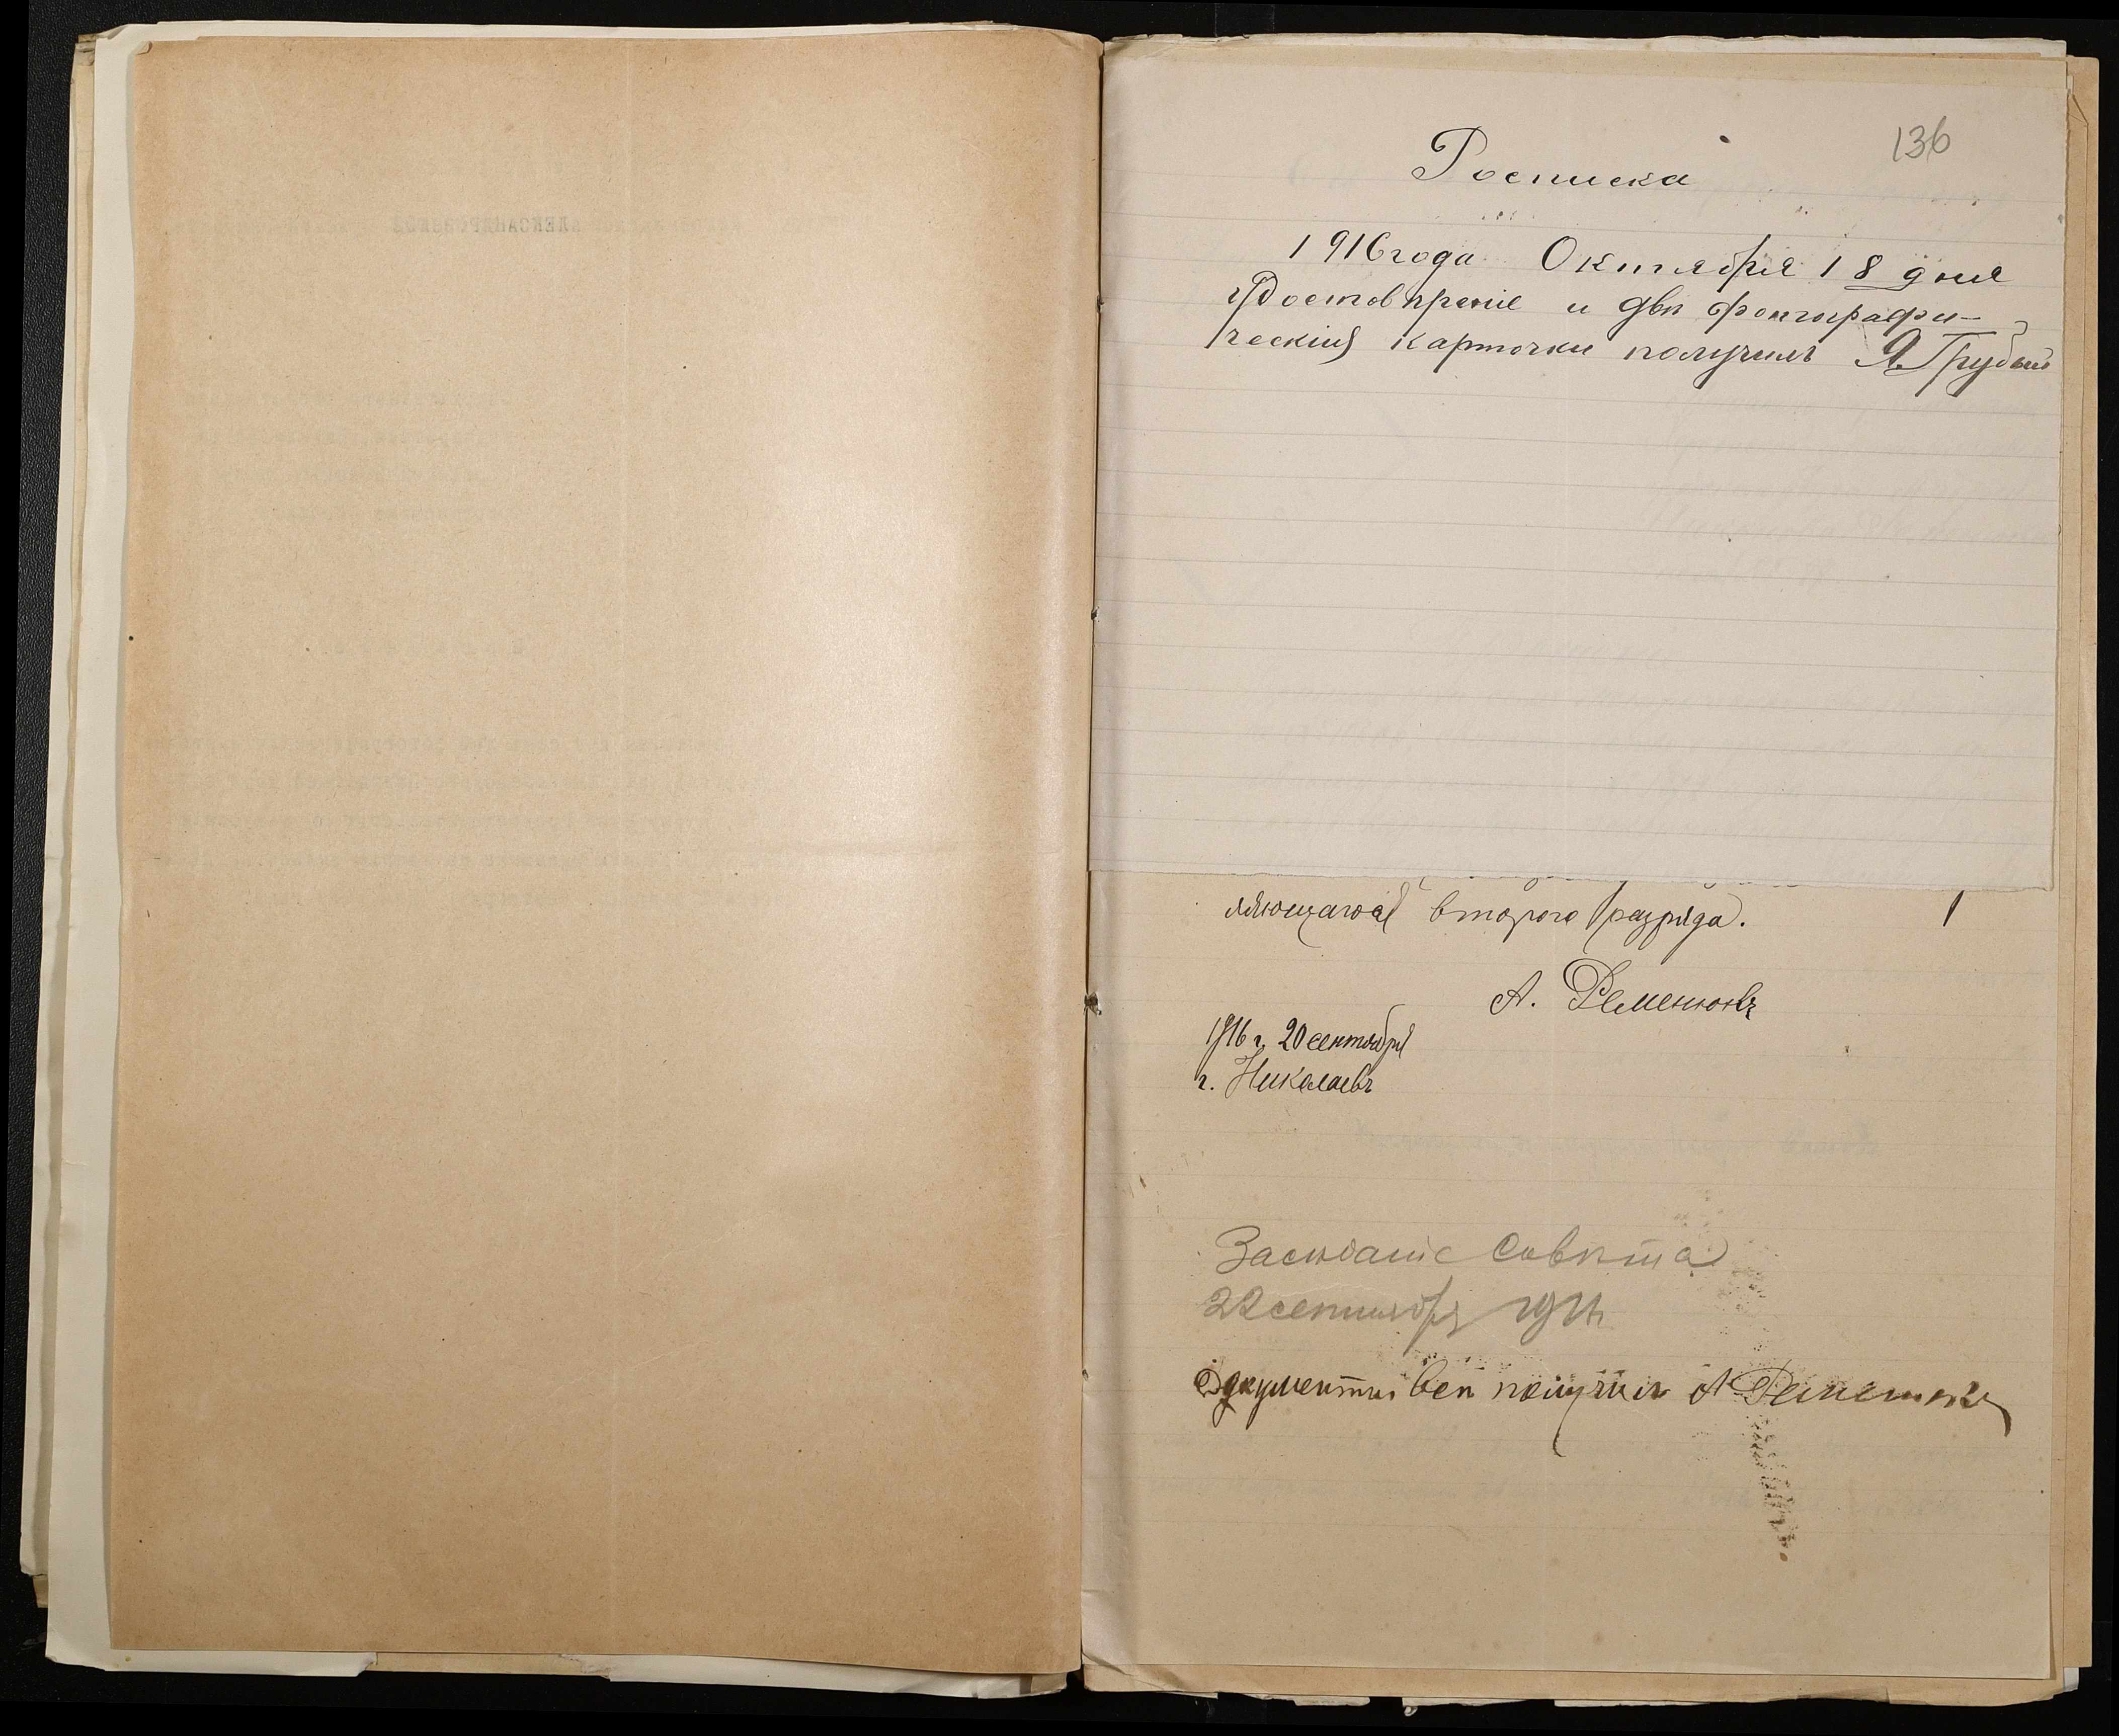 136
Росписка
1916 года Октября 18 дня
Удостовѣреніе и двѣ фотографи-
ческія карточки получилъ Я. Грубый
ляющагося второго разряда.
А. Ременюкъ
1916 г. 20 сентября
г. Николаевъ
Засѣданіе Совѣта
22 сентября
Документы всѣ получилъ А Ременюкъ